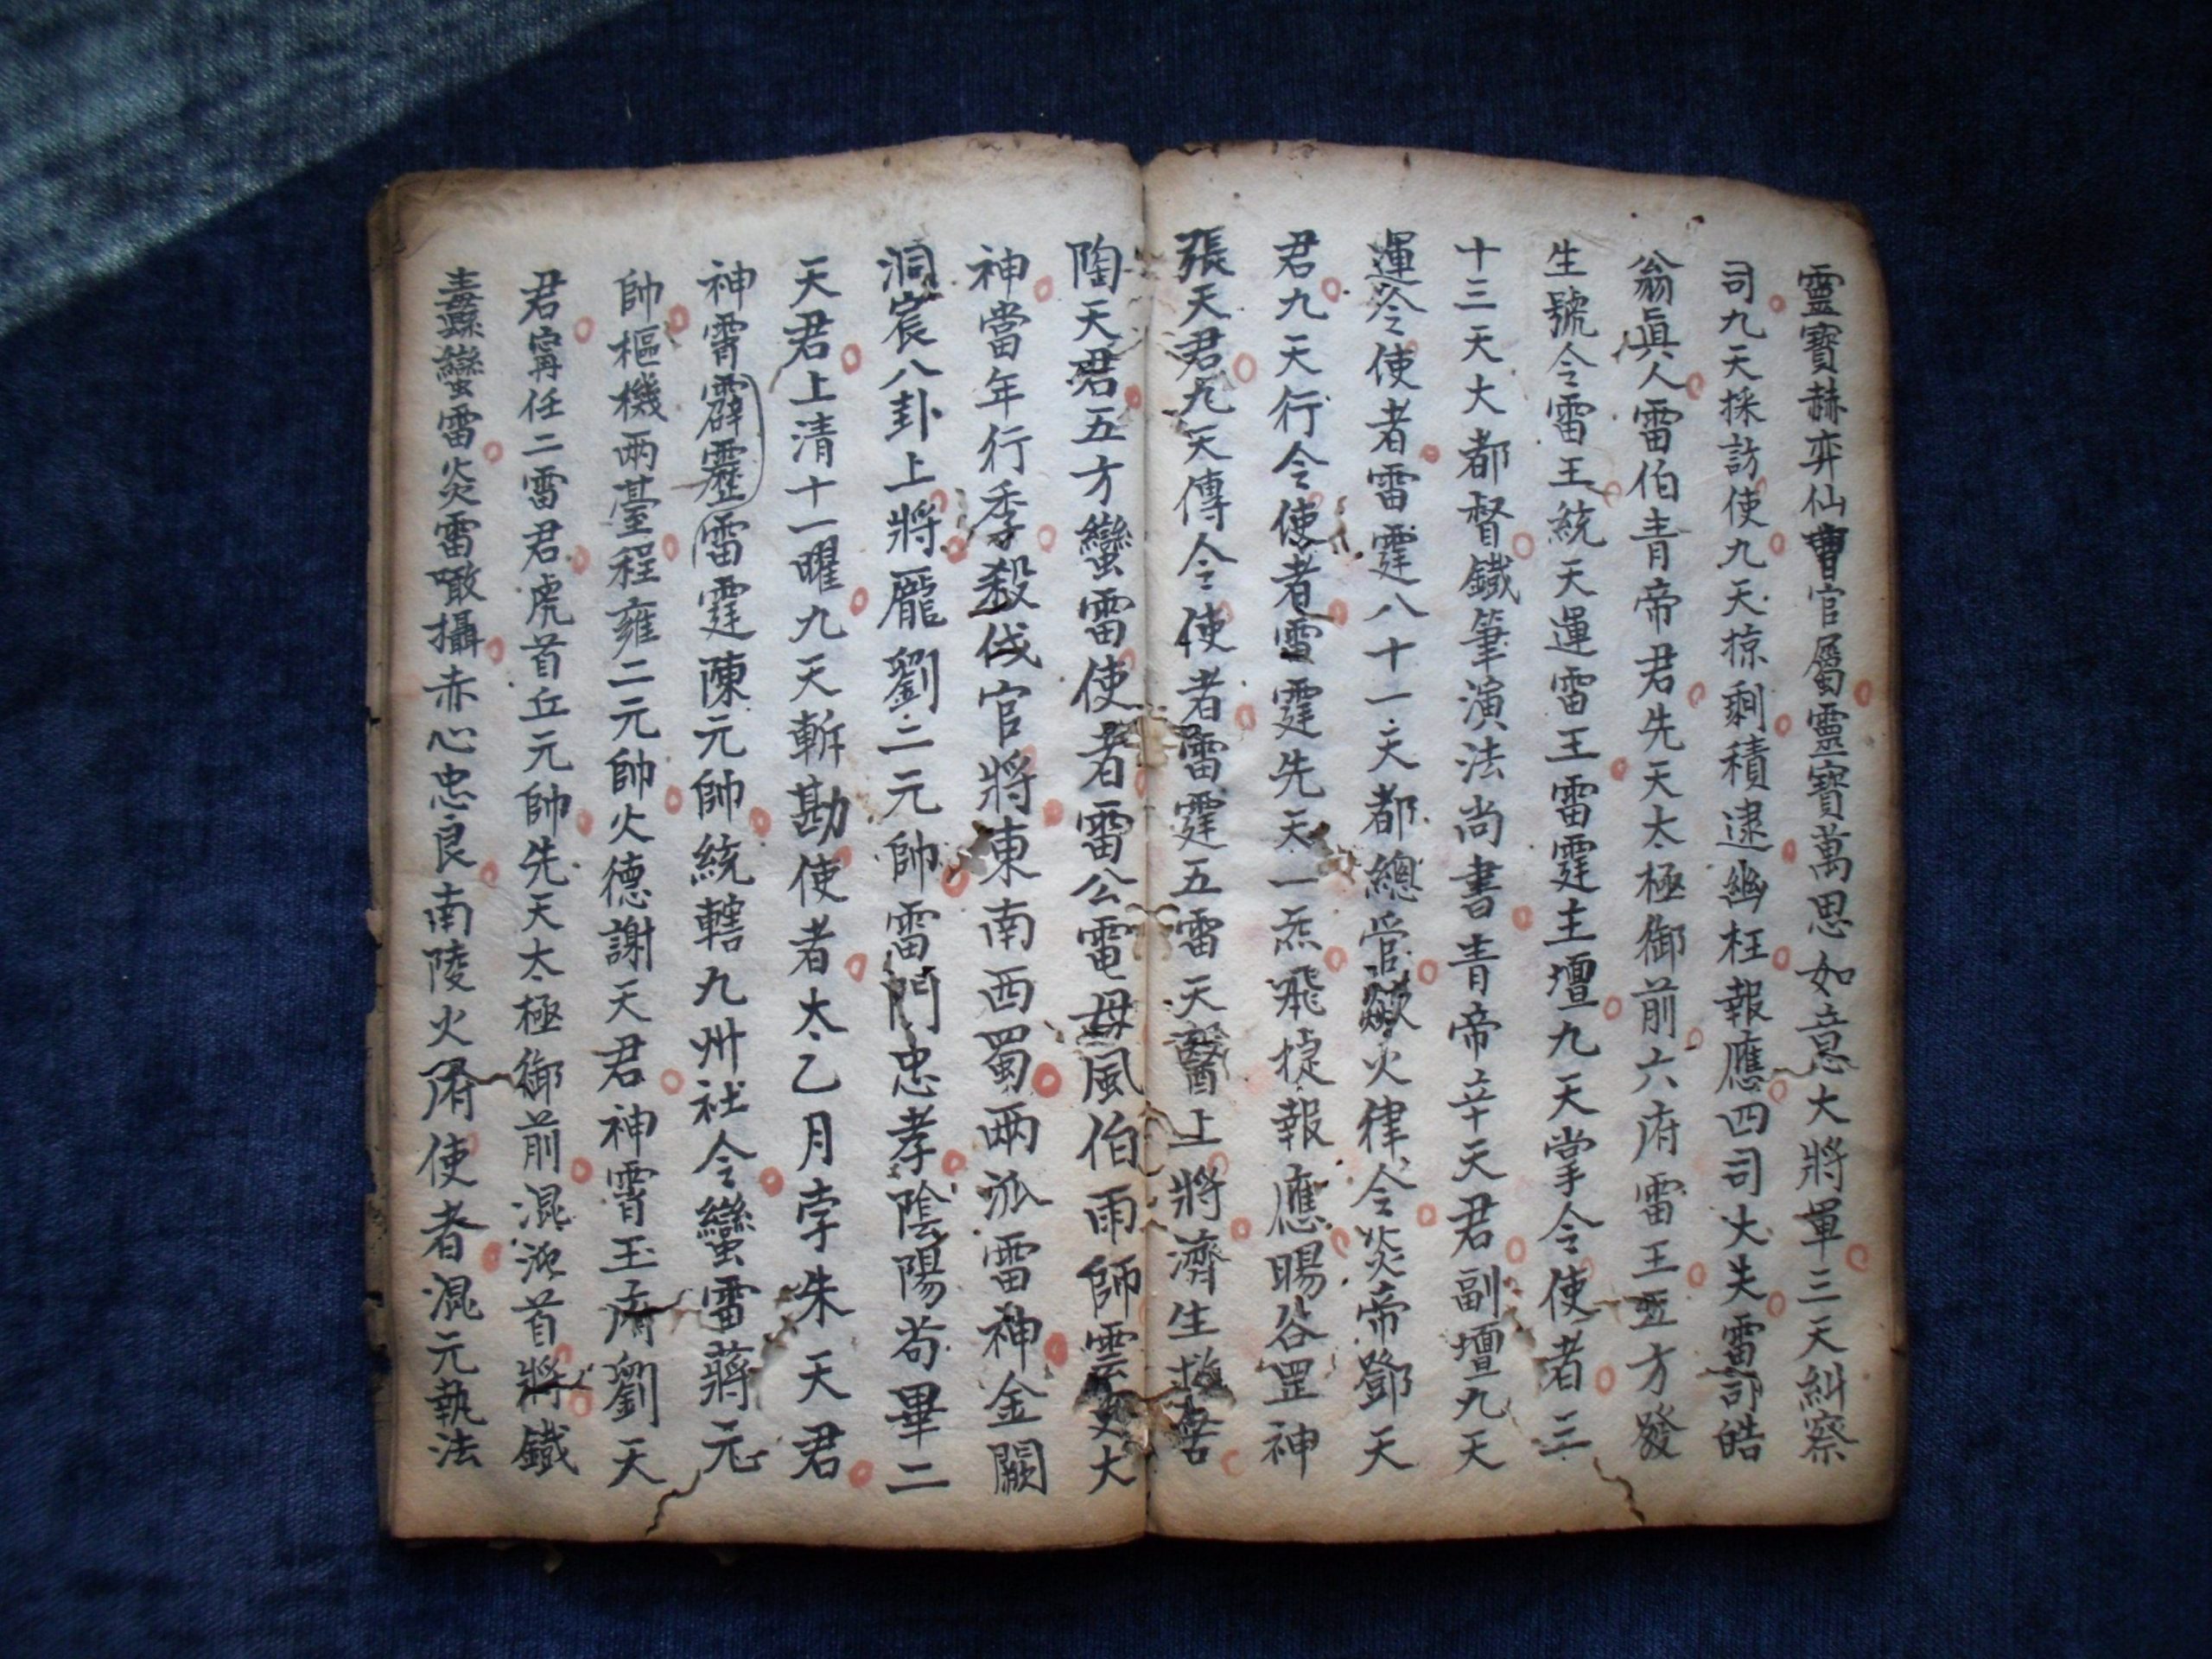 靈寶赫弈仙曹官屬靈寶萬思如意大將軍三天糾察
司九天採訪使九天掠剩積逮幽枉報應四司大夫雷部皓
翁眞人雷伯青帝君先天太極御前六府雷王五方發
生號令雷王統天運雷王雷霆主壇九天掌令使者三
十三天大都督鐵筆演法尚書青帝辛天君副壇九天
運令使者雷霆八十一天都總管欻火律令炎帝鄧天
君九天行令使者雷霆先天一炁飛捷報應賜谷罡神
張天君九天傳令使者雷霆五雷天醫上將濟生救苦
陶天君五方蠻雷使者雷公電母風伯雨師雲吏大
神當年行季殺伐官將東南西蜀兩派雷神金闕
洞宸八卦上將龐劉二元帥雷門忠孝陰陽苟畢二
天君上清十一曜九天斬勘使者太乙月孛朱天君
神霄霹靂雷霆陳元帥統轄九州社令蠻雷蔣元
帥樞機兩臺程雍二元帥火德謝天君神霄玉府劉天
君甯任二雷君虎首丘元帥先天太極御前混沌首將鐵
蠻雷炎雷噉攝赤心忠良南陵火府使者混元執法